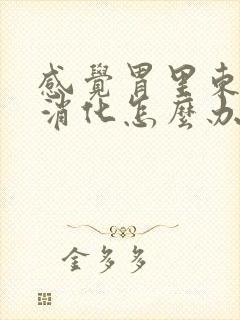 感覺胃里東
消化怎麼办
金多多